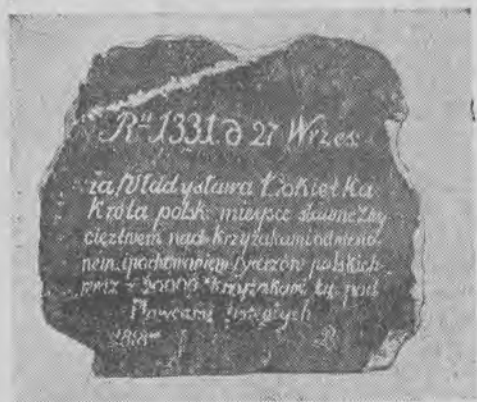 Rᵘ 1331. d 27 Wrzes.
za Władysława Łokietka
Króla polsk: mieysce sławne Zwy
cięztwem nad Krzyżakami odniesio-
nem, i pochowaniem Rycerzów polskich
wraz z 20000 Krzyżakami tu pod
Płowcami poległych